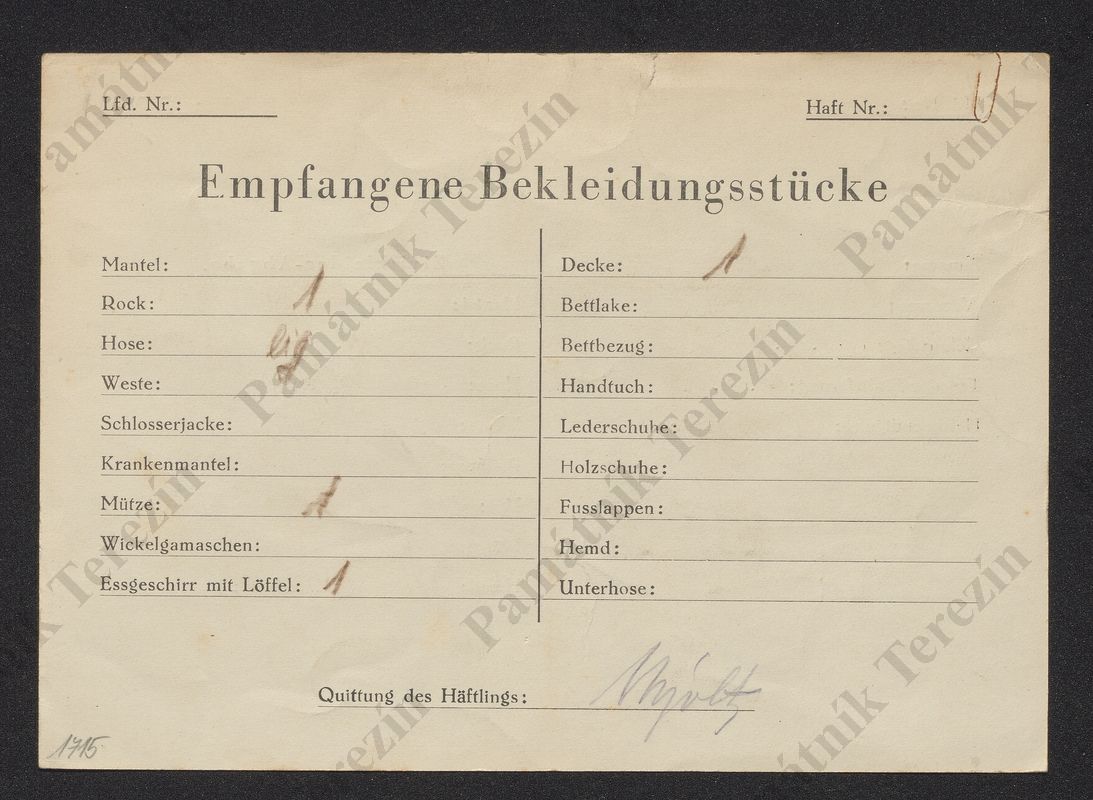 Lfd. Nr.:
Haft Nr.:
Empfangene Bekleidungsstücke
Mantel:
Rock: 1
Hose:
Weste:
Schlosserjacke:
Krankenmantel:
Mütze: 1
Wickelgamaschen:
Essgeschirr mit Löffel: 1
Decke: 1
Bettlake:
Bettbezug:
Handtuch:
Lederschuhe:
Holzschuhe:
Fusslappen:
Hemd:
Unterhose:
Quittung des Häftlings:
1715
Památník Terezín